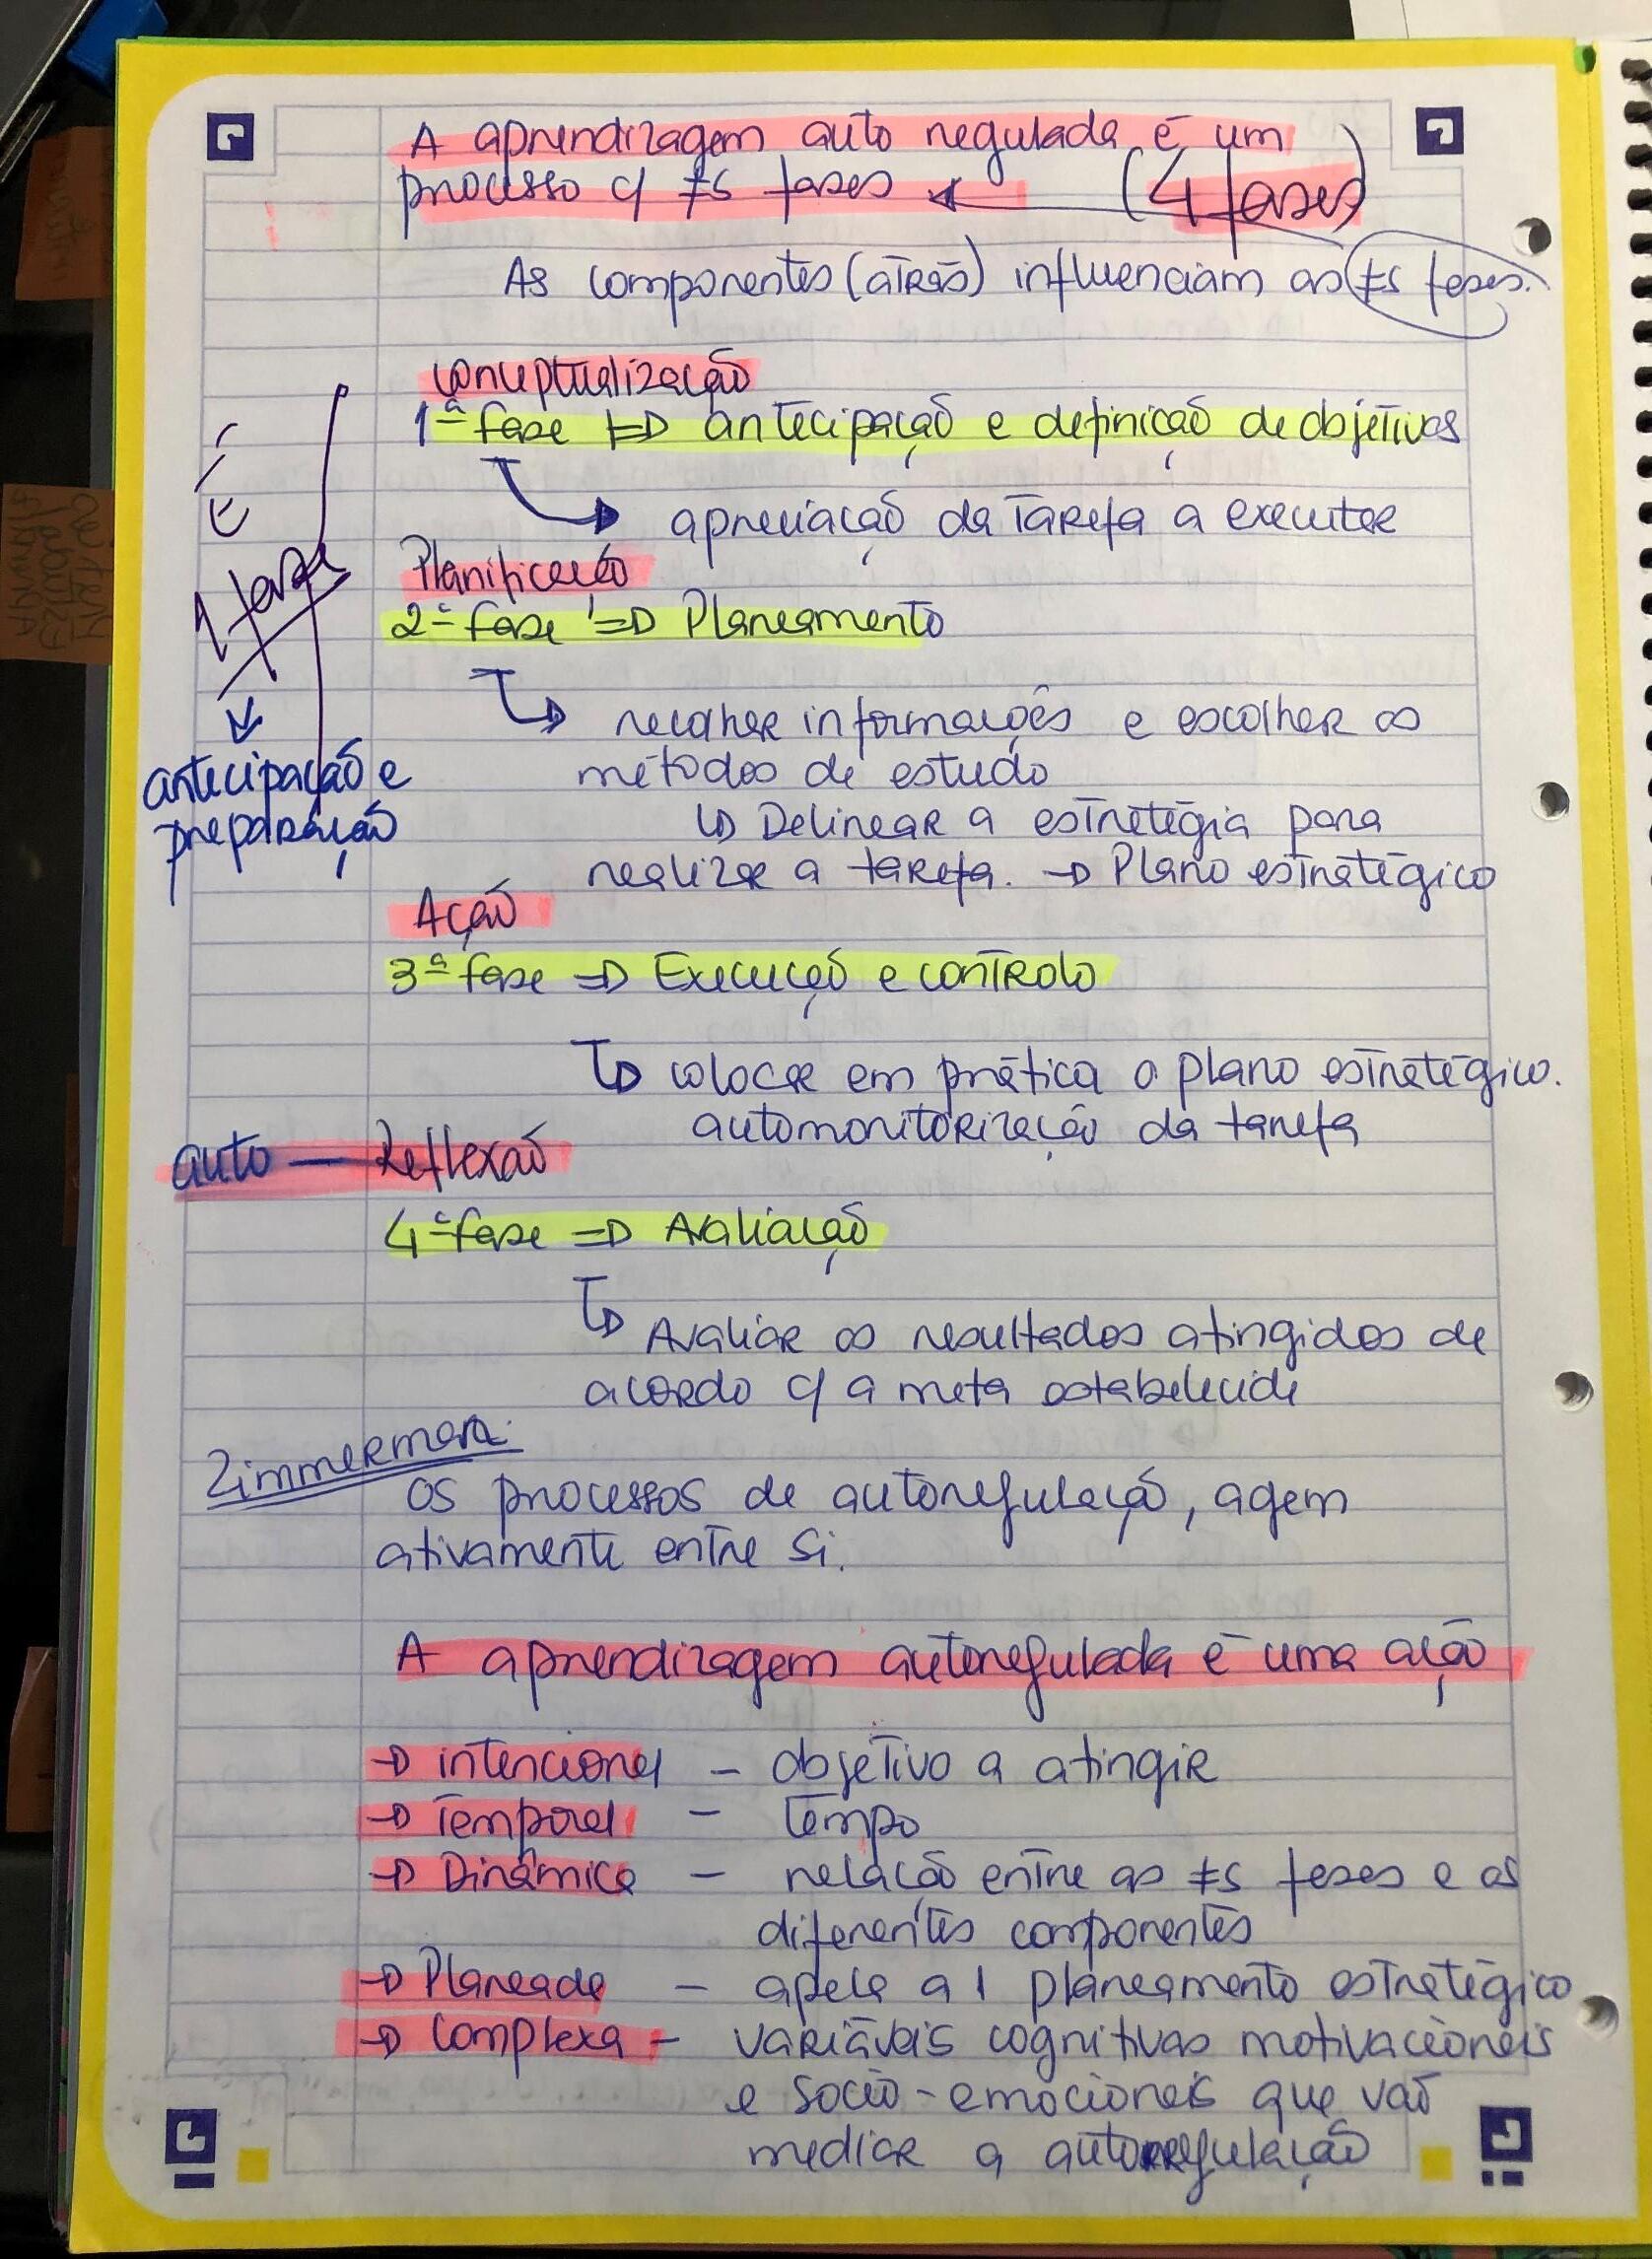 A aprendizagem auto regulada é um
processo c/ ≠s fases ← (4 fases)
As componentes (atrás) influenciam as ≠s fases.
Conceptualização
1ª fase => antecipação e definição de objetivos
apreciação da tarefa a executar
É
1 fase
antecipação e
preparação
Planificação
2ª fase => Planeamento
↳ recolher informações e escolher os
métodos de estudo
↳ Delinear a estratégia para
realizar a tarefa. → Plano estratégico
Ação
3ª fase => Execução e controlo
↳ colocar em prática o plano estratégico.
automonitorização da tarefa
auto — Reflexão
4ª fase => Avaliação
↳ Avaliar os resultados atingidos de
acordo c/ a meta estabelecida
Zimmerman:
Os processos de autoregulação, agem
ativamente entre si.
A aprendizagem autoregulada é uma ação
→ intencional – objetivo a atingir
→ Temporal – Tempo
→ Dinâmica – relação entre as ≠s fases e as
diferentes componentes
→ Planeada – apela a 1 planeamento estratégico
→ Complexa – variáveis cognitivas motivacionais
e socio-emocionais que vão
mediar a autorregulação